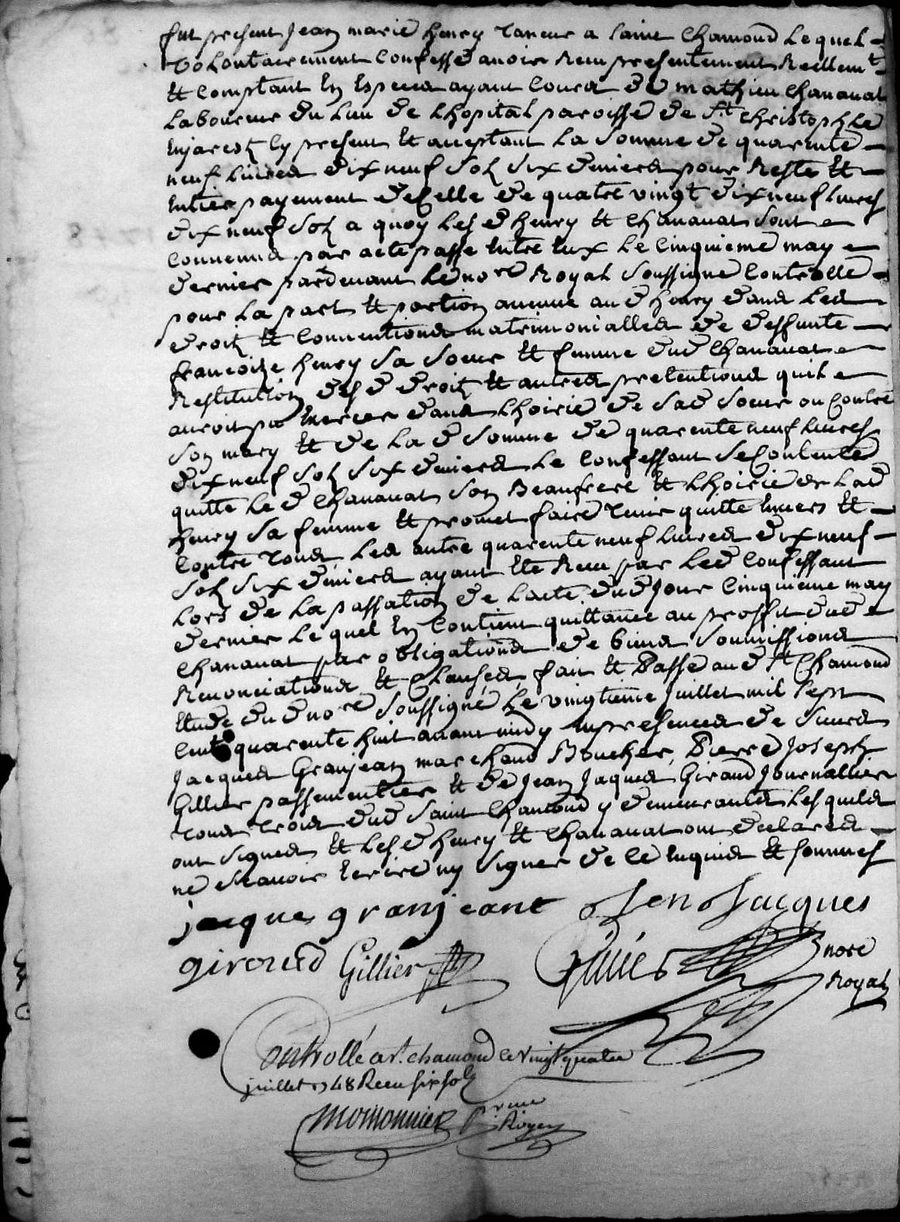 fut present Jean marie henry Taneur a saint Chamond Lequel
volontairement Confesse avoir Receu presentement Reellemt
et Comptant En Especes ayant Cours de mathieu Chanavat
Laboureur du Lieu de Lhopital paroisse de St Christophle
Enjarest Cy present et acceptant La somme de quarente
neuf Livres dix neuf sols six deniers pour Reste et
Entier payement de Celle de quatre vingt dix neuf Livres
dix neuf sols a quoy Lesd henry et Chanavat sont
Convenus par acte passé Entre Eux Le Cinquieme may
dernier pardevant Le nore Royal soussigné Controllé
pour La part et portion avenue aud henry dans Les
droits et Conventions matrimonialles de deffunte
francoise henry sa soeur et femme dud Chanavat
Restitution desd droits et autres pretentions quil
auroit pu Exercer dans Lhoirie de sad soeur ou Contre
son mary et de La d somme de quarente neuf Livres
dix neuf sols six deniers Le Confessant se Contente
quitte Led Chanavat son Beaufrere et Lhoirie de Lad
henry sa femme et promet faire Tenir quitte Envers et
Contre Tous, Les autre quarente neuf Livres dix neuf
sols six deniers ayant Eté Receu par Led Confessant
Lors de La passation de Lacte dud Jour Cinquieme may
dernier Lequel En Contient quittance au proffit dud
Chanavat par obligations de biens soumissions
Renonciations et Clauses, fait et Passé aud St Chamond
Etude du d nore soussigné Le vingtieme Juillet mil sept
Cents quarente huit avant midy En presences de sieurs
Jacques Granjean marchand Boucher, Pierre Joseph
Gillier passementier et de Jean Jaques Giraud Journallier
Tous Trois dud saint Chamond y demeurants Lesquels
ont signés et Lesd henry et Chanavat ont declarés
ne scavoir Ecrire ny signer de ce Enquis et sommés
jacque granjeant Jen Jacques
giroud Gillier nore
Royal
Controllé a St. chamond le vingt quatre
juillet 1748 Receu six sols